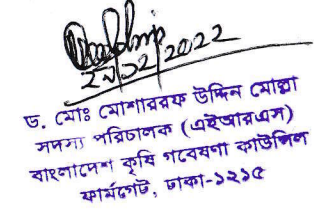 ২৯/১২/২০২২
ড. মোঃ মোশাররফ উদ্দিন মোল্লা
সদস্য পরিচালক (এইআরএস)
বাংলাদেশ কৃষি গবেষণা কাউন্সিল
ফার্মগেট, ঢাকা-১২১৫